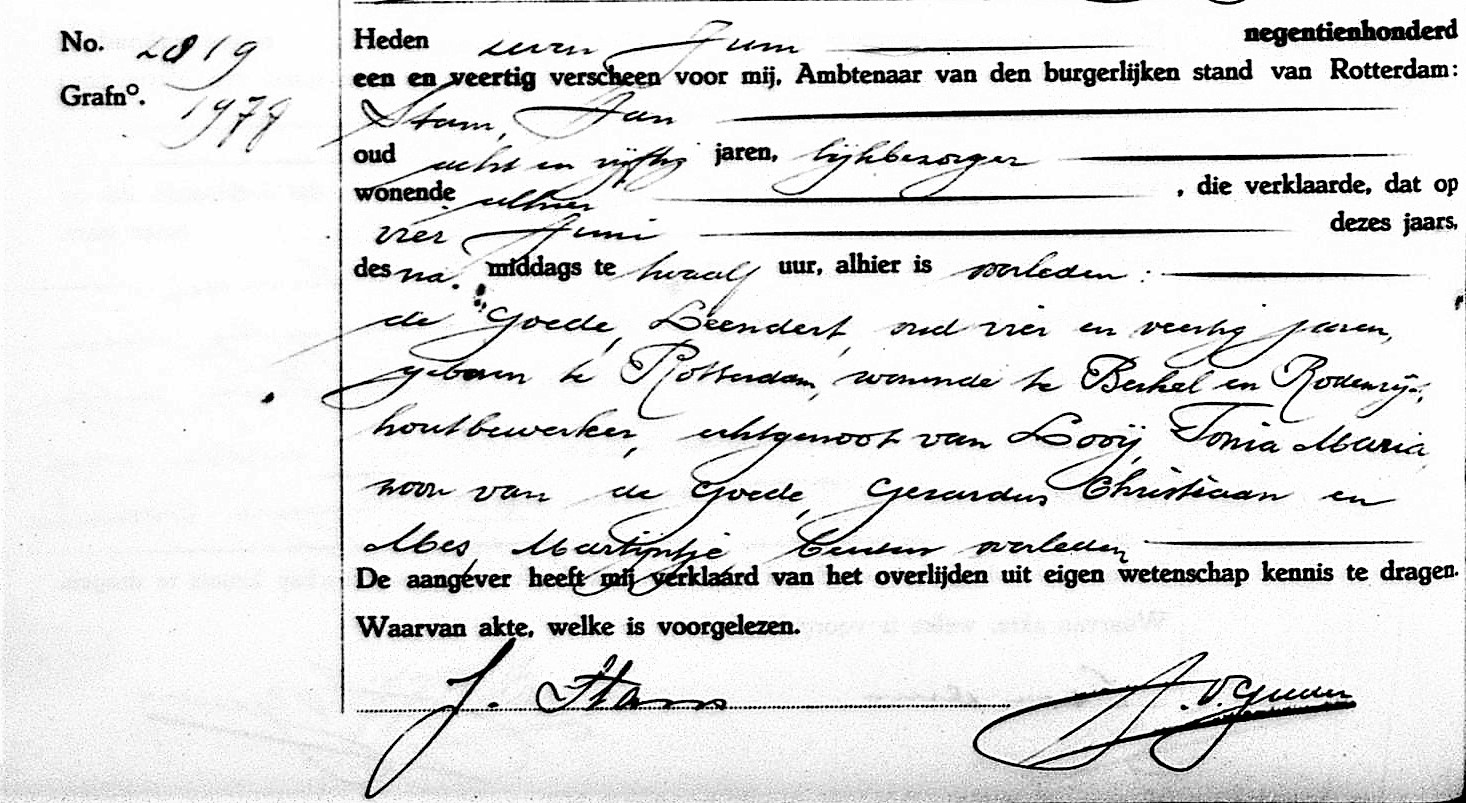 No. 2819
Grafno. 1978
Heden zeven Juni negentienhonderd
een en veertig verscheen voor mij, Ambtenaar van den burgerlijken stand van Rotterdam:
Stam, Jan
oud acht en vijftig jaren, lijkbezorger
wonende alhier, die verklaarde, dat op
vier Juni dezes jaars,
des na. middags te twaalf uur, alhier is overleden:
de Goede, Leendert, oud vier en veertig jaren,
geboren te Rotterdam, wonende te Berkel en Rodenrijs,
houtbewerker, echtgenoot van Looij, Tonia Maria,
zoon van de Goede, Gerardus Christiaan en
Mes, Martijntje, beiden overleden
De aangever heeft mij verklaard van het overlijden uit eigen wetenschap kennis te dragen.
Waarvan akte, welke is voorgelezen.
J. Stam